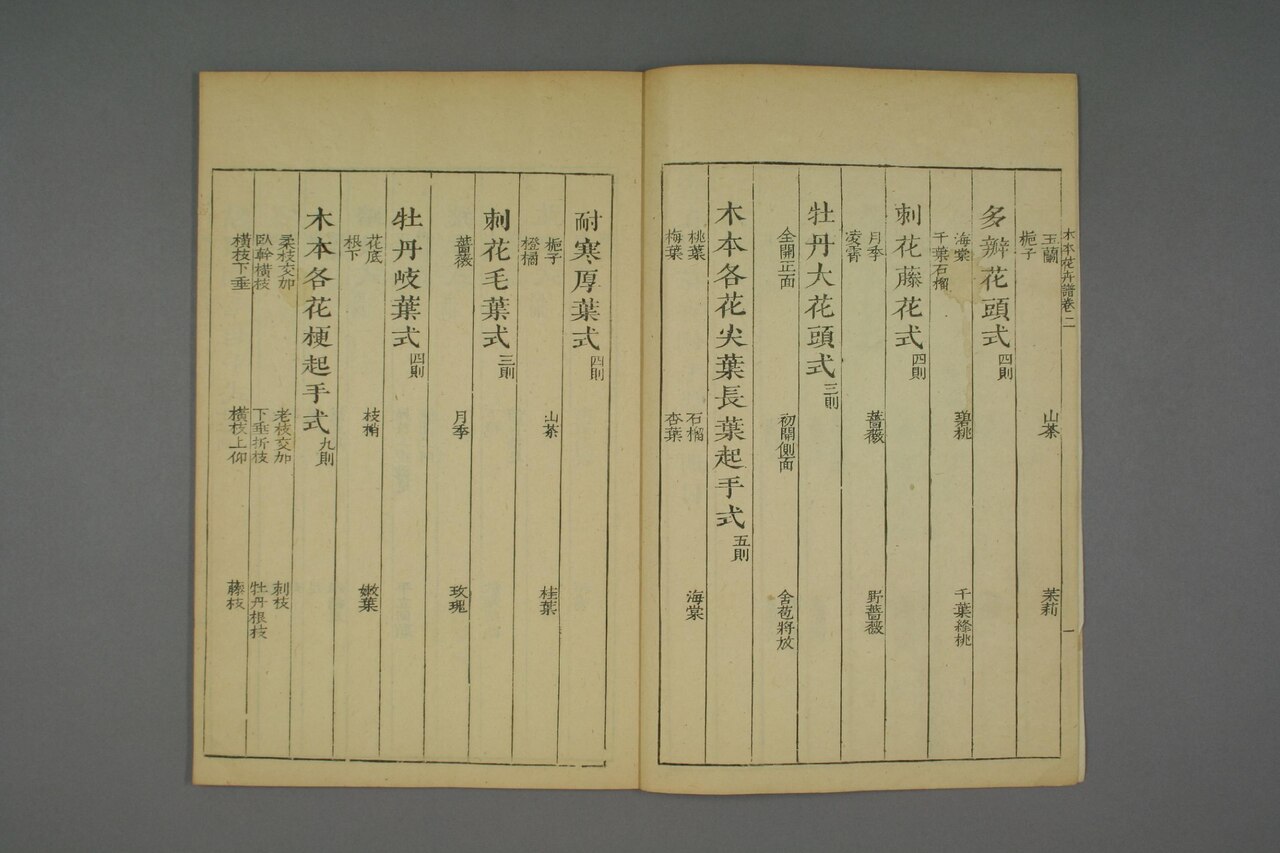 木本花卉譜卷二
一
玉蘭 山茶 茉莉
梔子
多瓣花頭式四則
海棠 碧桃 千葉絳桃
千葉石榴
刺花藤花式四則
月季 薔薇 野薔薇
凌霄
牡丹大花頭式三則
全開正面 初開側面 含苞將放
木本各花尖葉長葉起手式五則
桃葉 石榴 海棠
梅葉 杏葉
耐寒厚葉式四則
梔子 山茶 桂葉
橙橘
刺花毛葉式三則
薔薇 月季 玫瑰
牡丹岐葉式四則
花底 枝梢 嫩葉
根下
木本各花梗起手式九則
柔枝交加 老枝交加 刺枝
臥幹橫枝 下垂折枝 牡丹根枝
橫枝下垂 橫枝上仰 藤枝